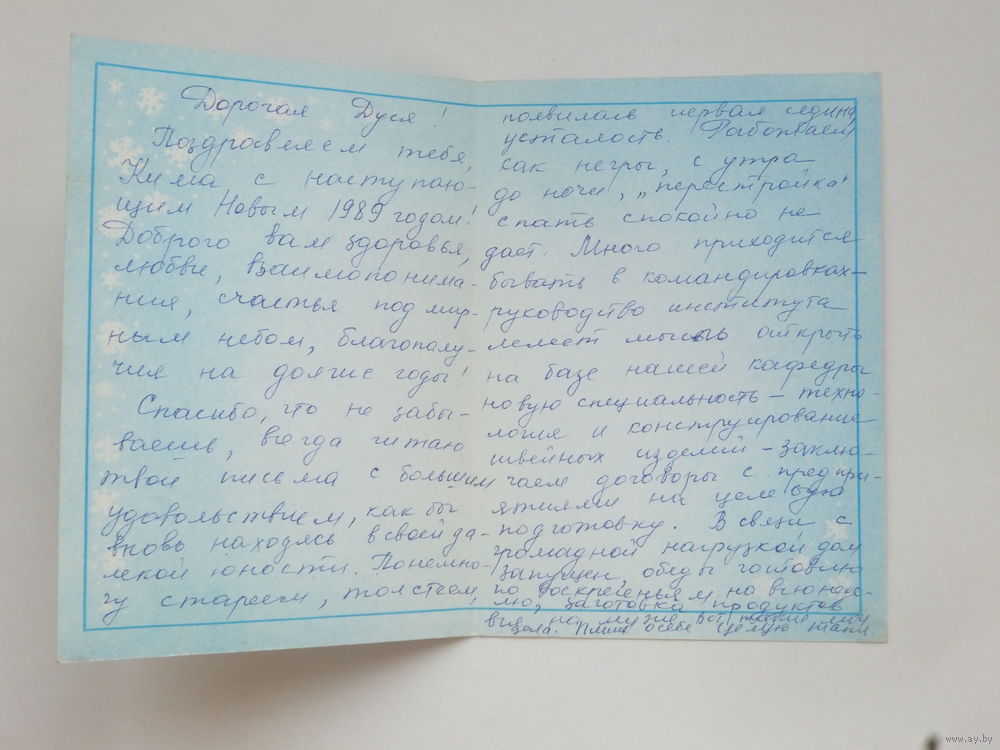 Дорогая Дуся!
Поздравляем тебя,
Кима, с наступаю-
щим Новым 1989 годом!
Доброго вам здоровья,
любви, взаимопонима-
ния, счастья под мир-
ным небом, благополу-
чия на долгие годы!
Спасибо, что не забы-
ваешь, всегда читаю
твои письма с большим
удовольствием, как бы
вновь находясь в своей да-
лекой юности. Понемно-
гу стареем, толстеем,
появилась первая седина,
усталость. Работаем
как негры, с утра
до ночи, "перестройка"
спать спокойно не
дает. Много приходится
бывать в командировках –
руководство института
лелеет мысль открыть
на базе нашей кафедры
новую специальность – техно-
логия и конструирование
швейных изделий – заклю-
чаем договоры с предпри-
ятиями на целевую
подготовку. В связи с
громадной нагрузкой дом
запущен, обеды готовлю
по воскресеньям на всю неде-
лю, заготовка продуктов
на муже.
Пиши о себе. Целую Таня.
www.ay.by